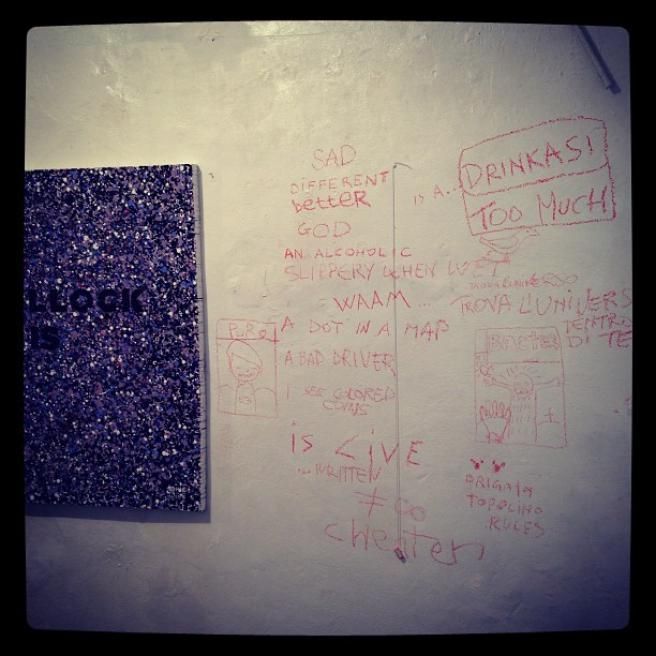 LLOCK
IS
SAD
DIFFERENT
better
GOD
AN ALCOHOLIC
SLIPPERY WHEN WET
WAAM ...
A DOT IN A MAP
A BAD DRIVER
I SEE COLORED
COINS
is LiVE
... WRITTEN
≠ co
cheater
IS A...
DRINKAS!
TOO MUCH
TROVA L'UNIVERSO
TROVA L'UNIVERS
DENTRO
DI TE
PURO
BRIGATA
TOPOLINO
RULES